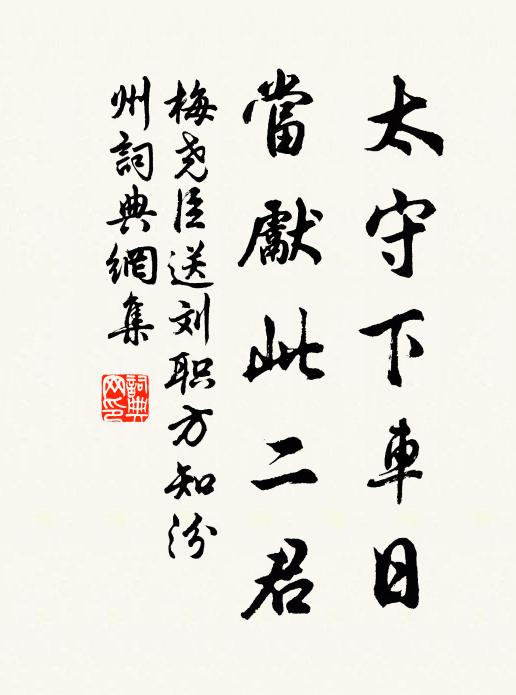 太守下車日
當獻此二君
梅尧臣送刘职方知汾
州詞典網集
詞典网印